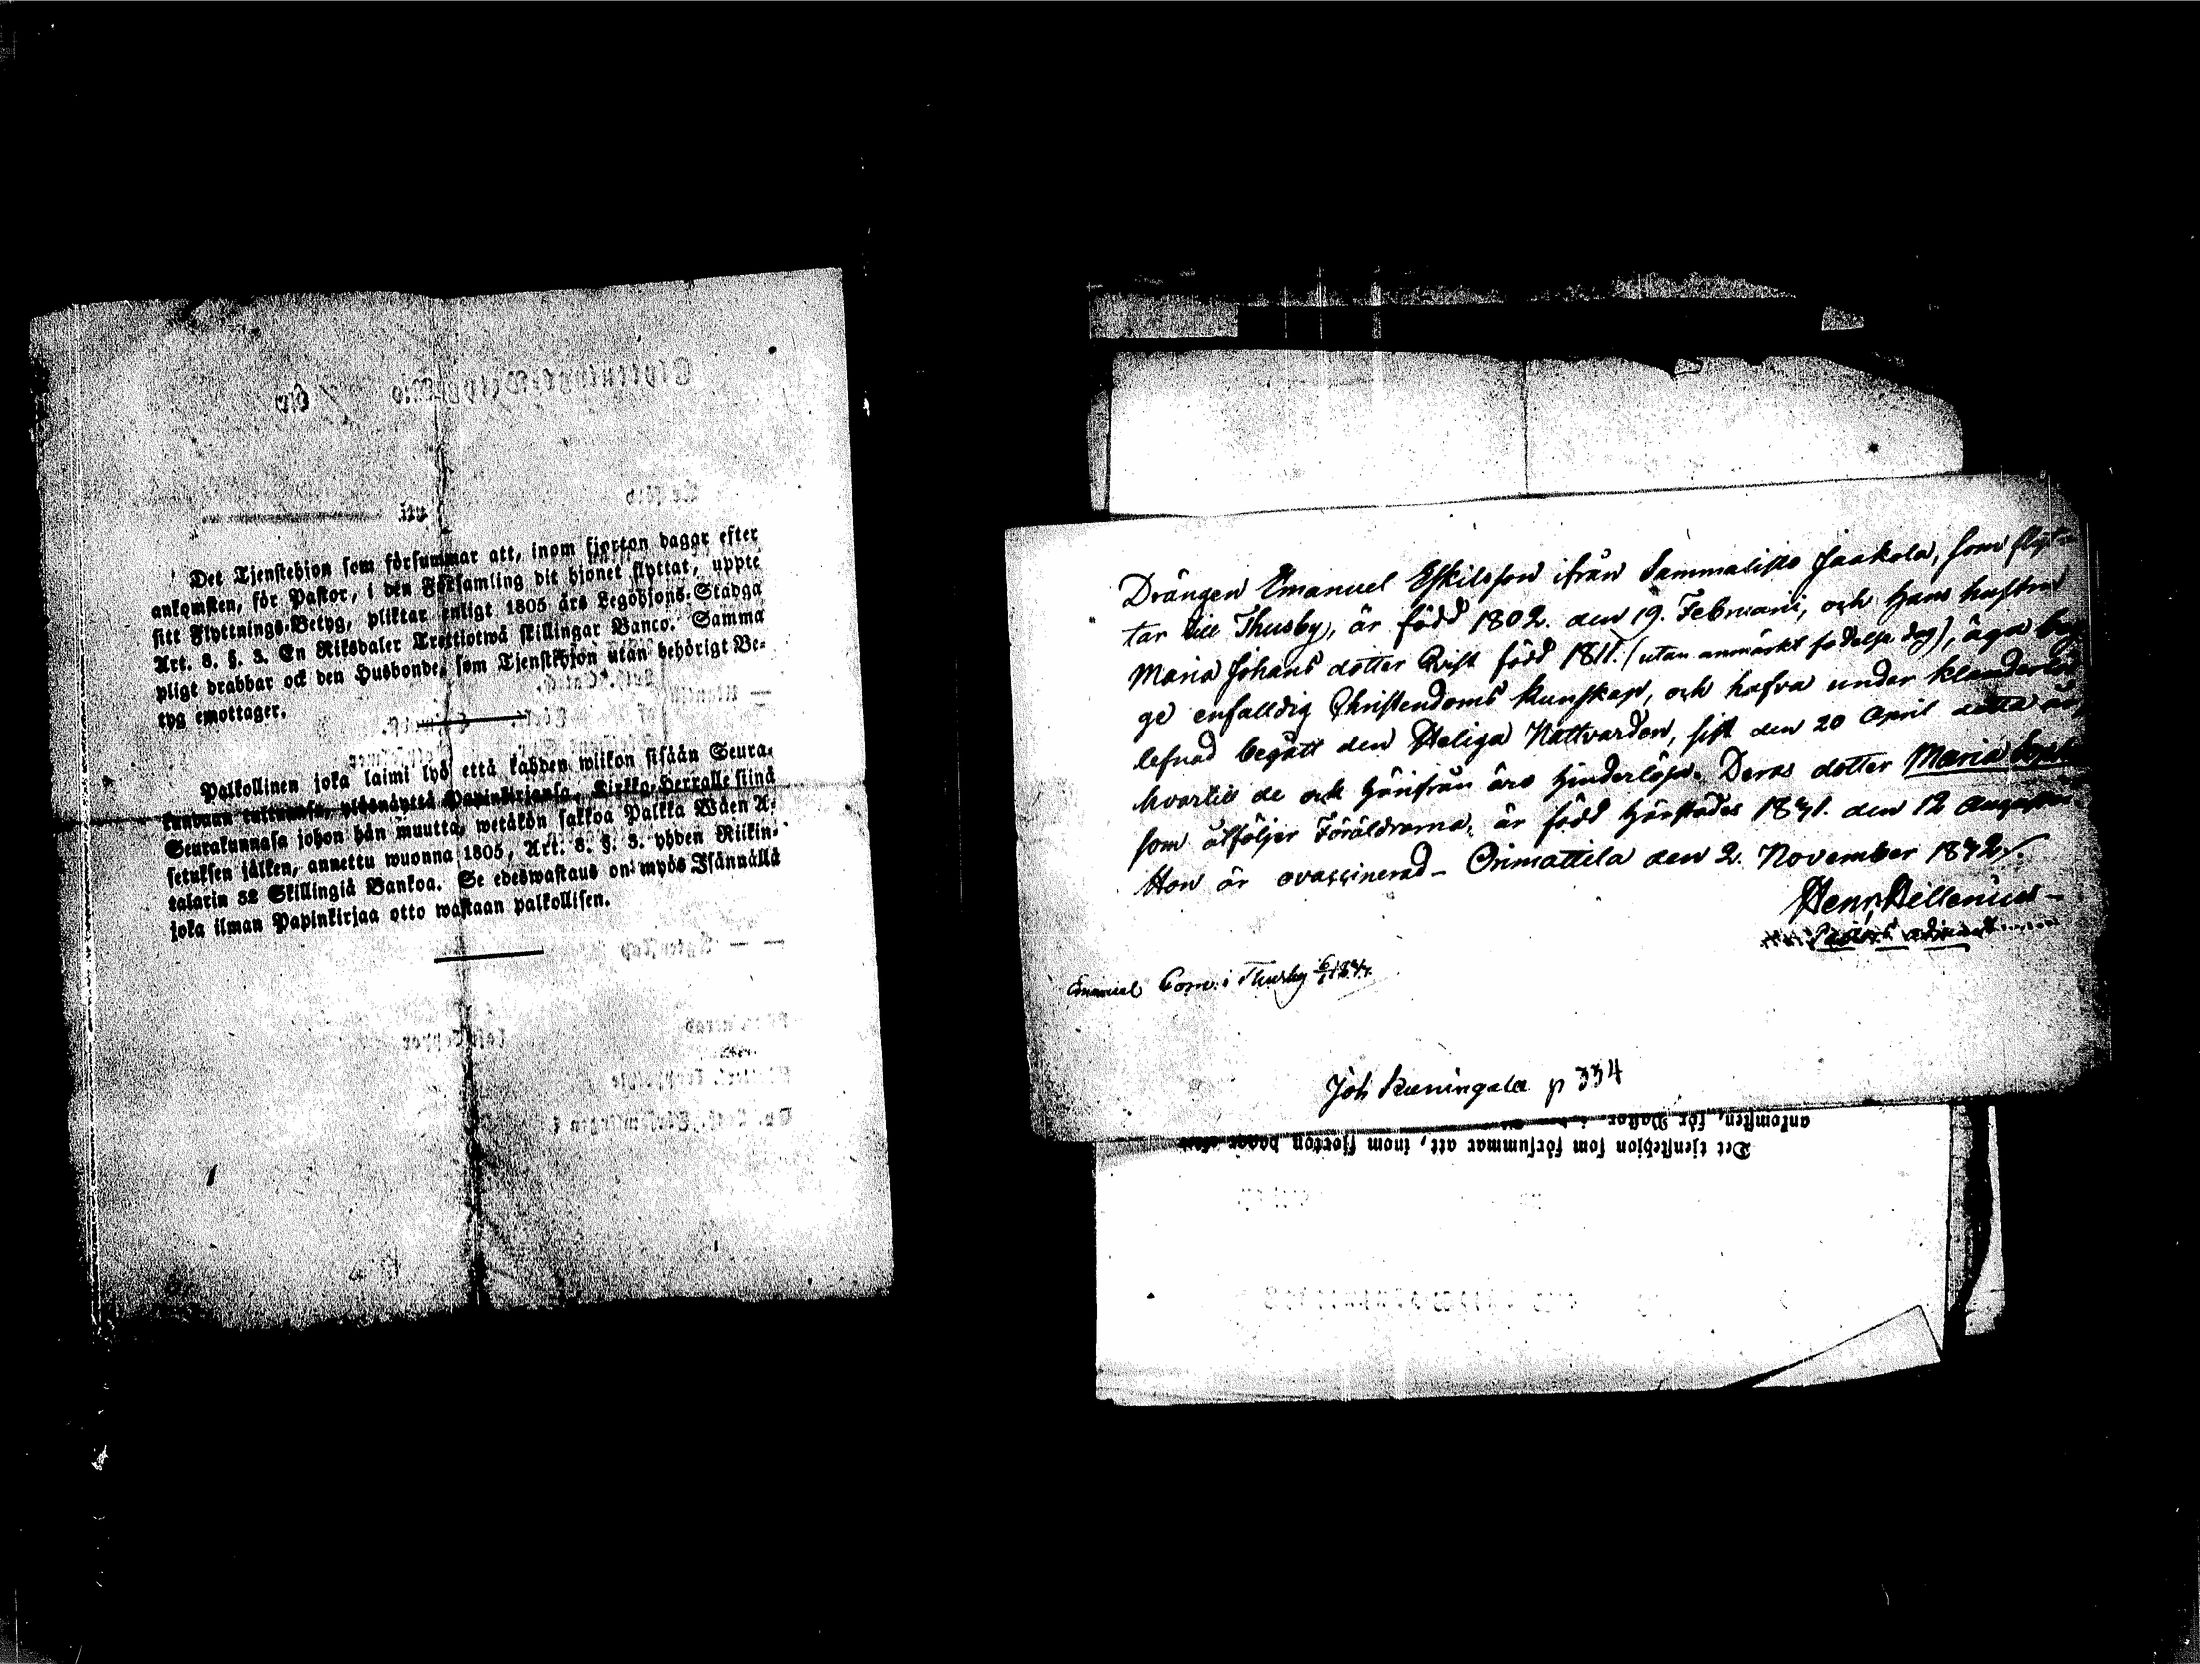 Det Tjenstehjon som försummar att, inom fjorton dagar efter
ankomsten, för Pastor, i den Församling dit hjonet flyttat, uppte
sitt Flyttnings-Betyg, pliktar enligt 1805 års Legohjons-Stadga
Art. 8. §. 3. En Riksdaler Trettiotwå skillingar Banco. Samma
pligt drabbar ock den Husbonde, som Tjenstehjon utan behörigt Be-
tyg emottager.
Palkollinen joka laimi lyö että kahden wiikon sisään Seura-
kundaan tultuansa, ylösnäyttä Papinkirjansa, Kirkko-Herralle siinä
Seurakunnasa johon hän muutta, wetäkön sakkoa Palkka Wäen A-
setuksen jälken, annettu wuonna 1805, Art. 8. §. 3. yhden Riikin-
talarin 32 Skillingiä Bankoa. Se edeswastaus on myös Isännällä
joka ilman Papinkirjaa otto wastaan palkollisen.
Drängen Emanuel Eskilsson ifrån Sammalisto Jaakola, som flyt-
tar till Thusby, är född 1802. den 19. Februarii, och hans hustru
Maria Johans dotter Qvist född 1811. (utan anmärkt födelse dag), äga
ge enfalldig Christendoms kunskap, och hafva under
lefnad begått den Heliga Nattvarden, sist den 20 April detta år,
hvartill de ock härifrån äro hinderlöse. Deras dotter Maria
som åtföljer Föräldrarna, är född härstädes 1841. den 12 Augusti
Hon är ovaccinerad - Orimattila den 2. November 1842.
Henr. Hellenius
Emanuel Com. i Thusby
Joh p 334
Det tjenstehjon som försummar att, inom fjorton dagar
ankomsten, för Pastor